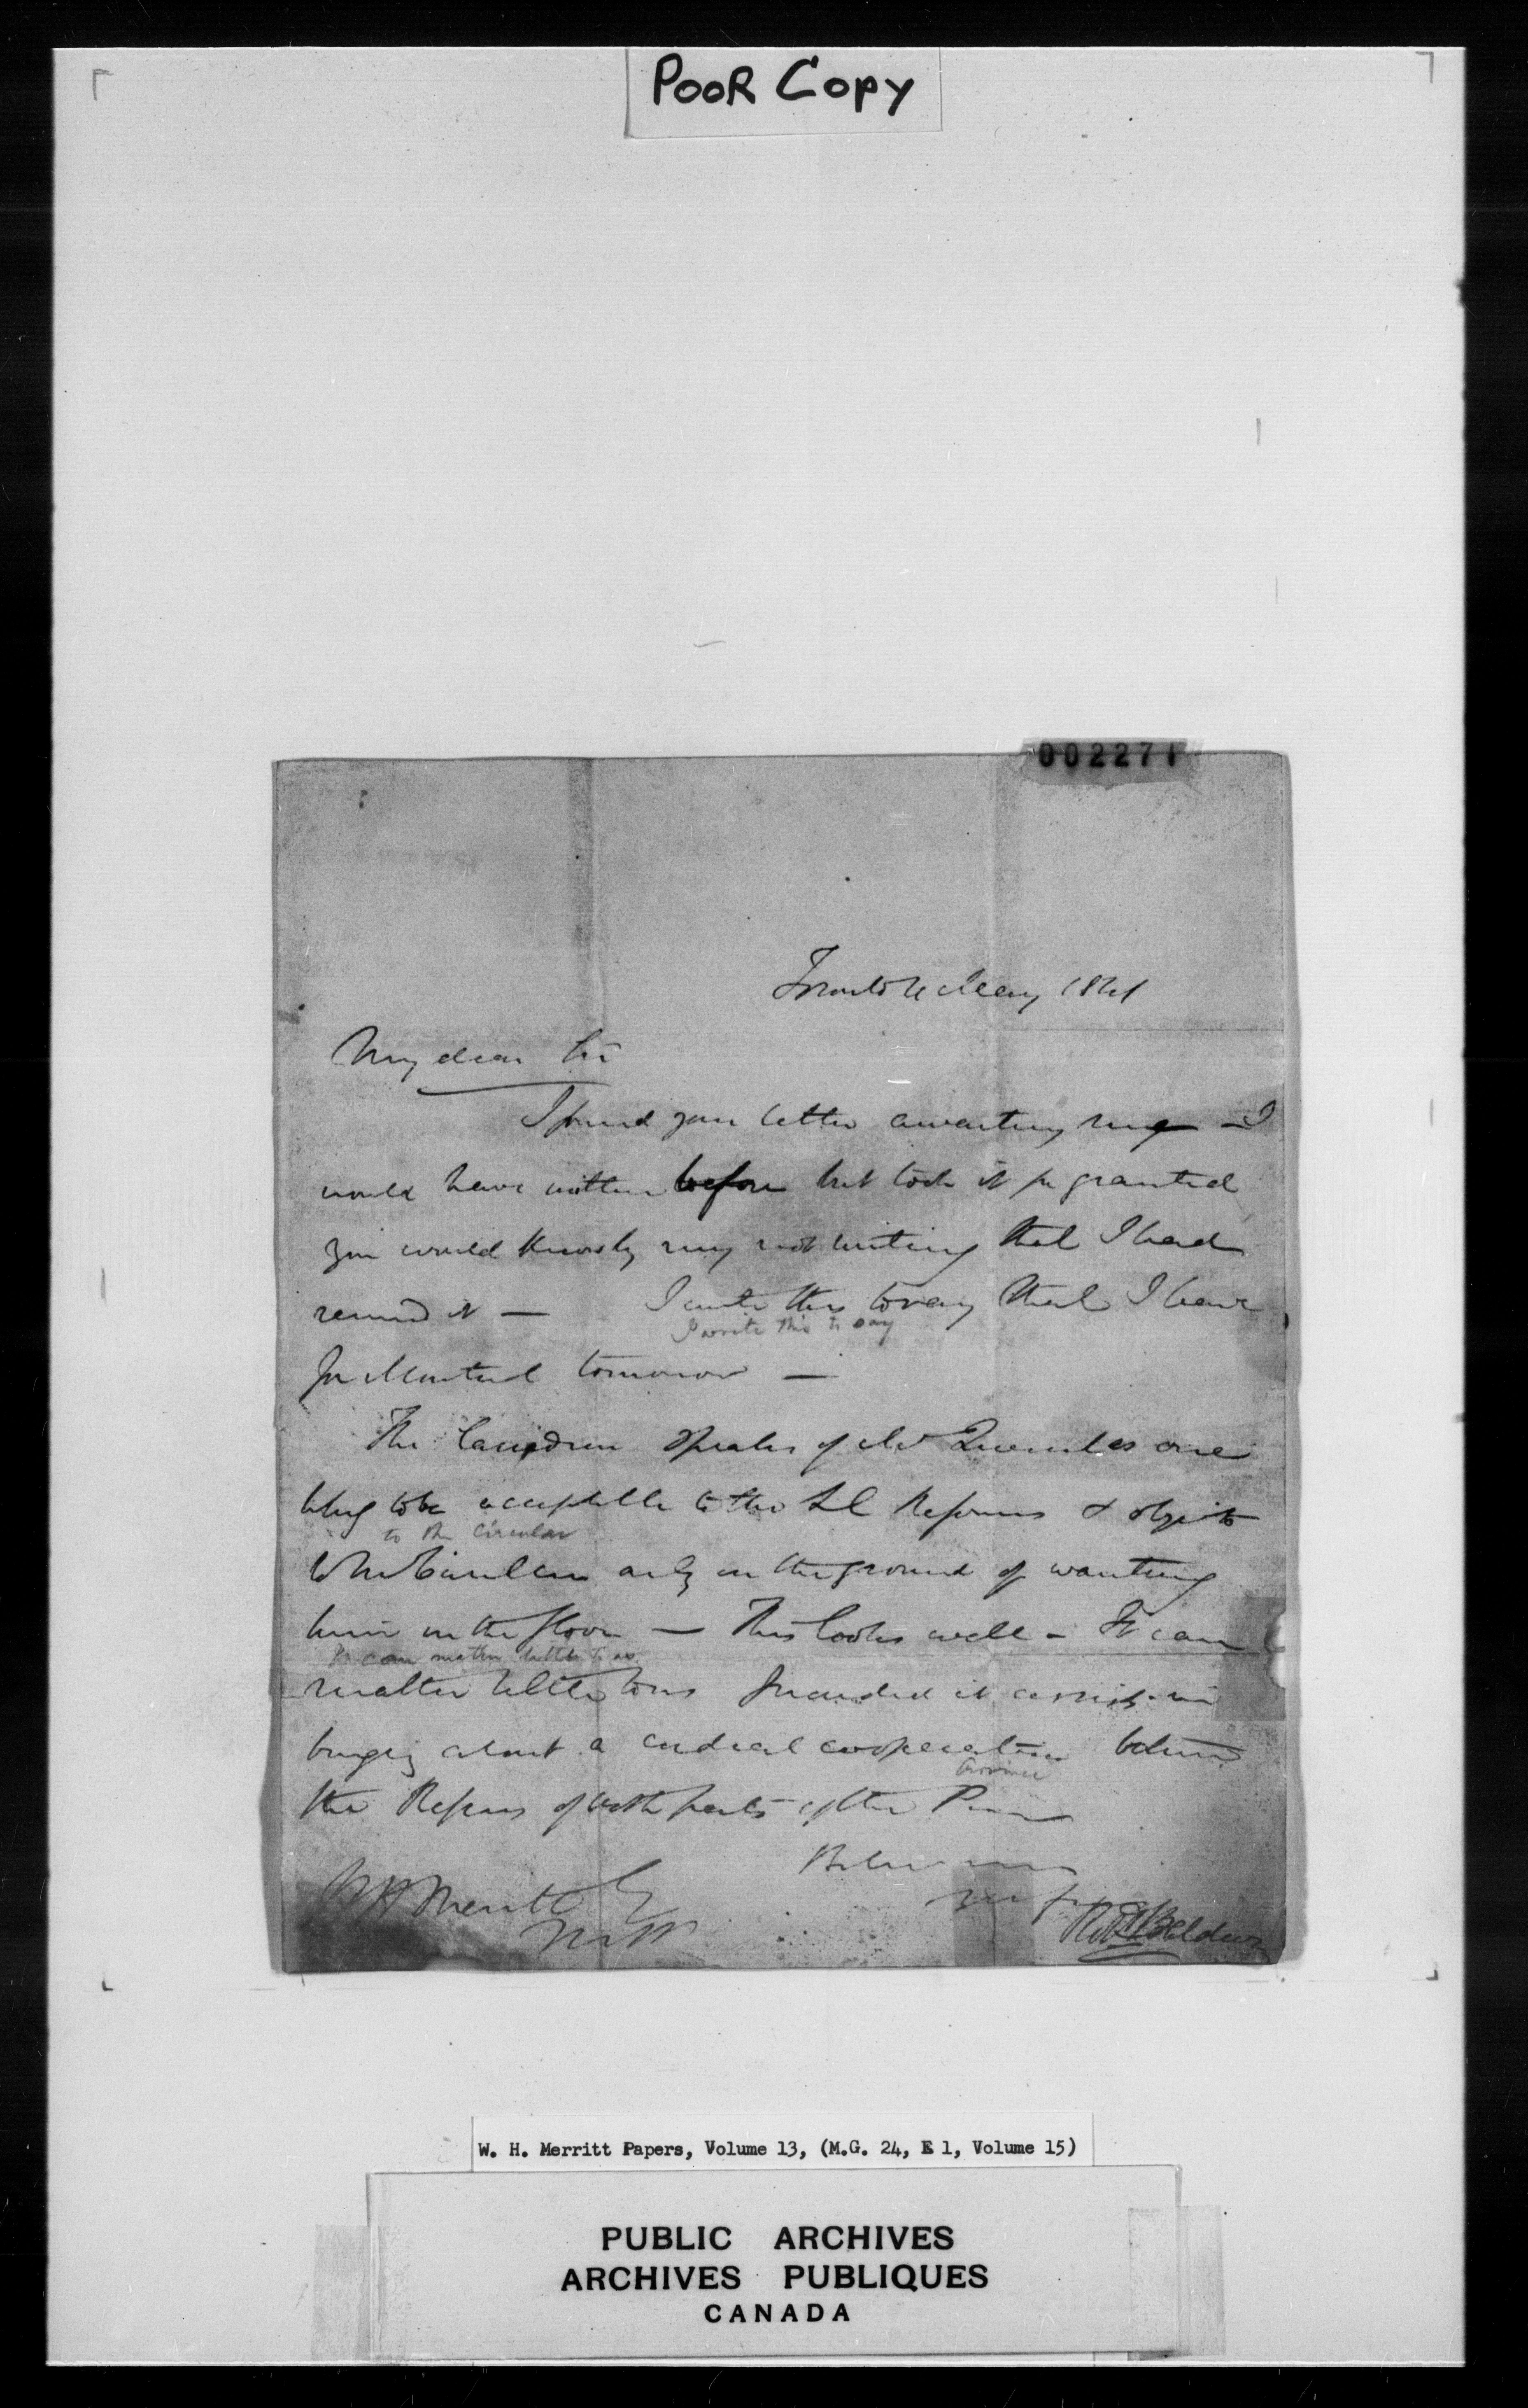 POOR COPY
002271
Toronto 4 May 1841
My dear Sir
I found your letter awaiting me — I
would have written before but took it for granted
you would know by my not writing that I had
received it — I write this to say that I leave
I write this to say
for Montreal tomorrow —
The Canadien speaks of Mr Quesnel as one
likely to be acceptable to the L C Reformers & objects
to the Circular
to the Circular only on the ground of wanting
him on the floor — This looks well — It can
It can matter little to us
matter little to us provided it assists in
bringing about a cordial cooperation between
Province
the Reformers of both parts of the Province
Believe me
W H Merritt Esq
Yours
Robt Baldwin
W. H. Merritt Papers, Volume 13, (M.G. 24, E 1, Volume 15)
PUBLIC ARCHIVES
ARCHIVES PUBLIQUES
CANADA